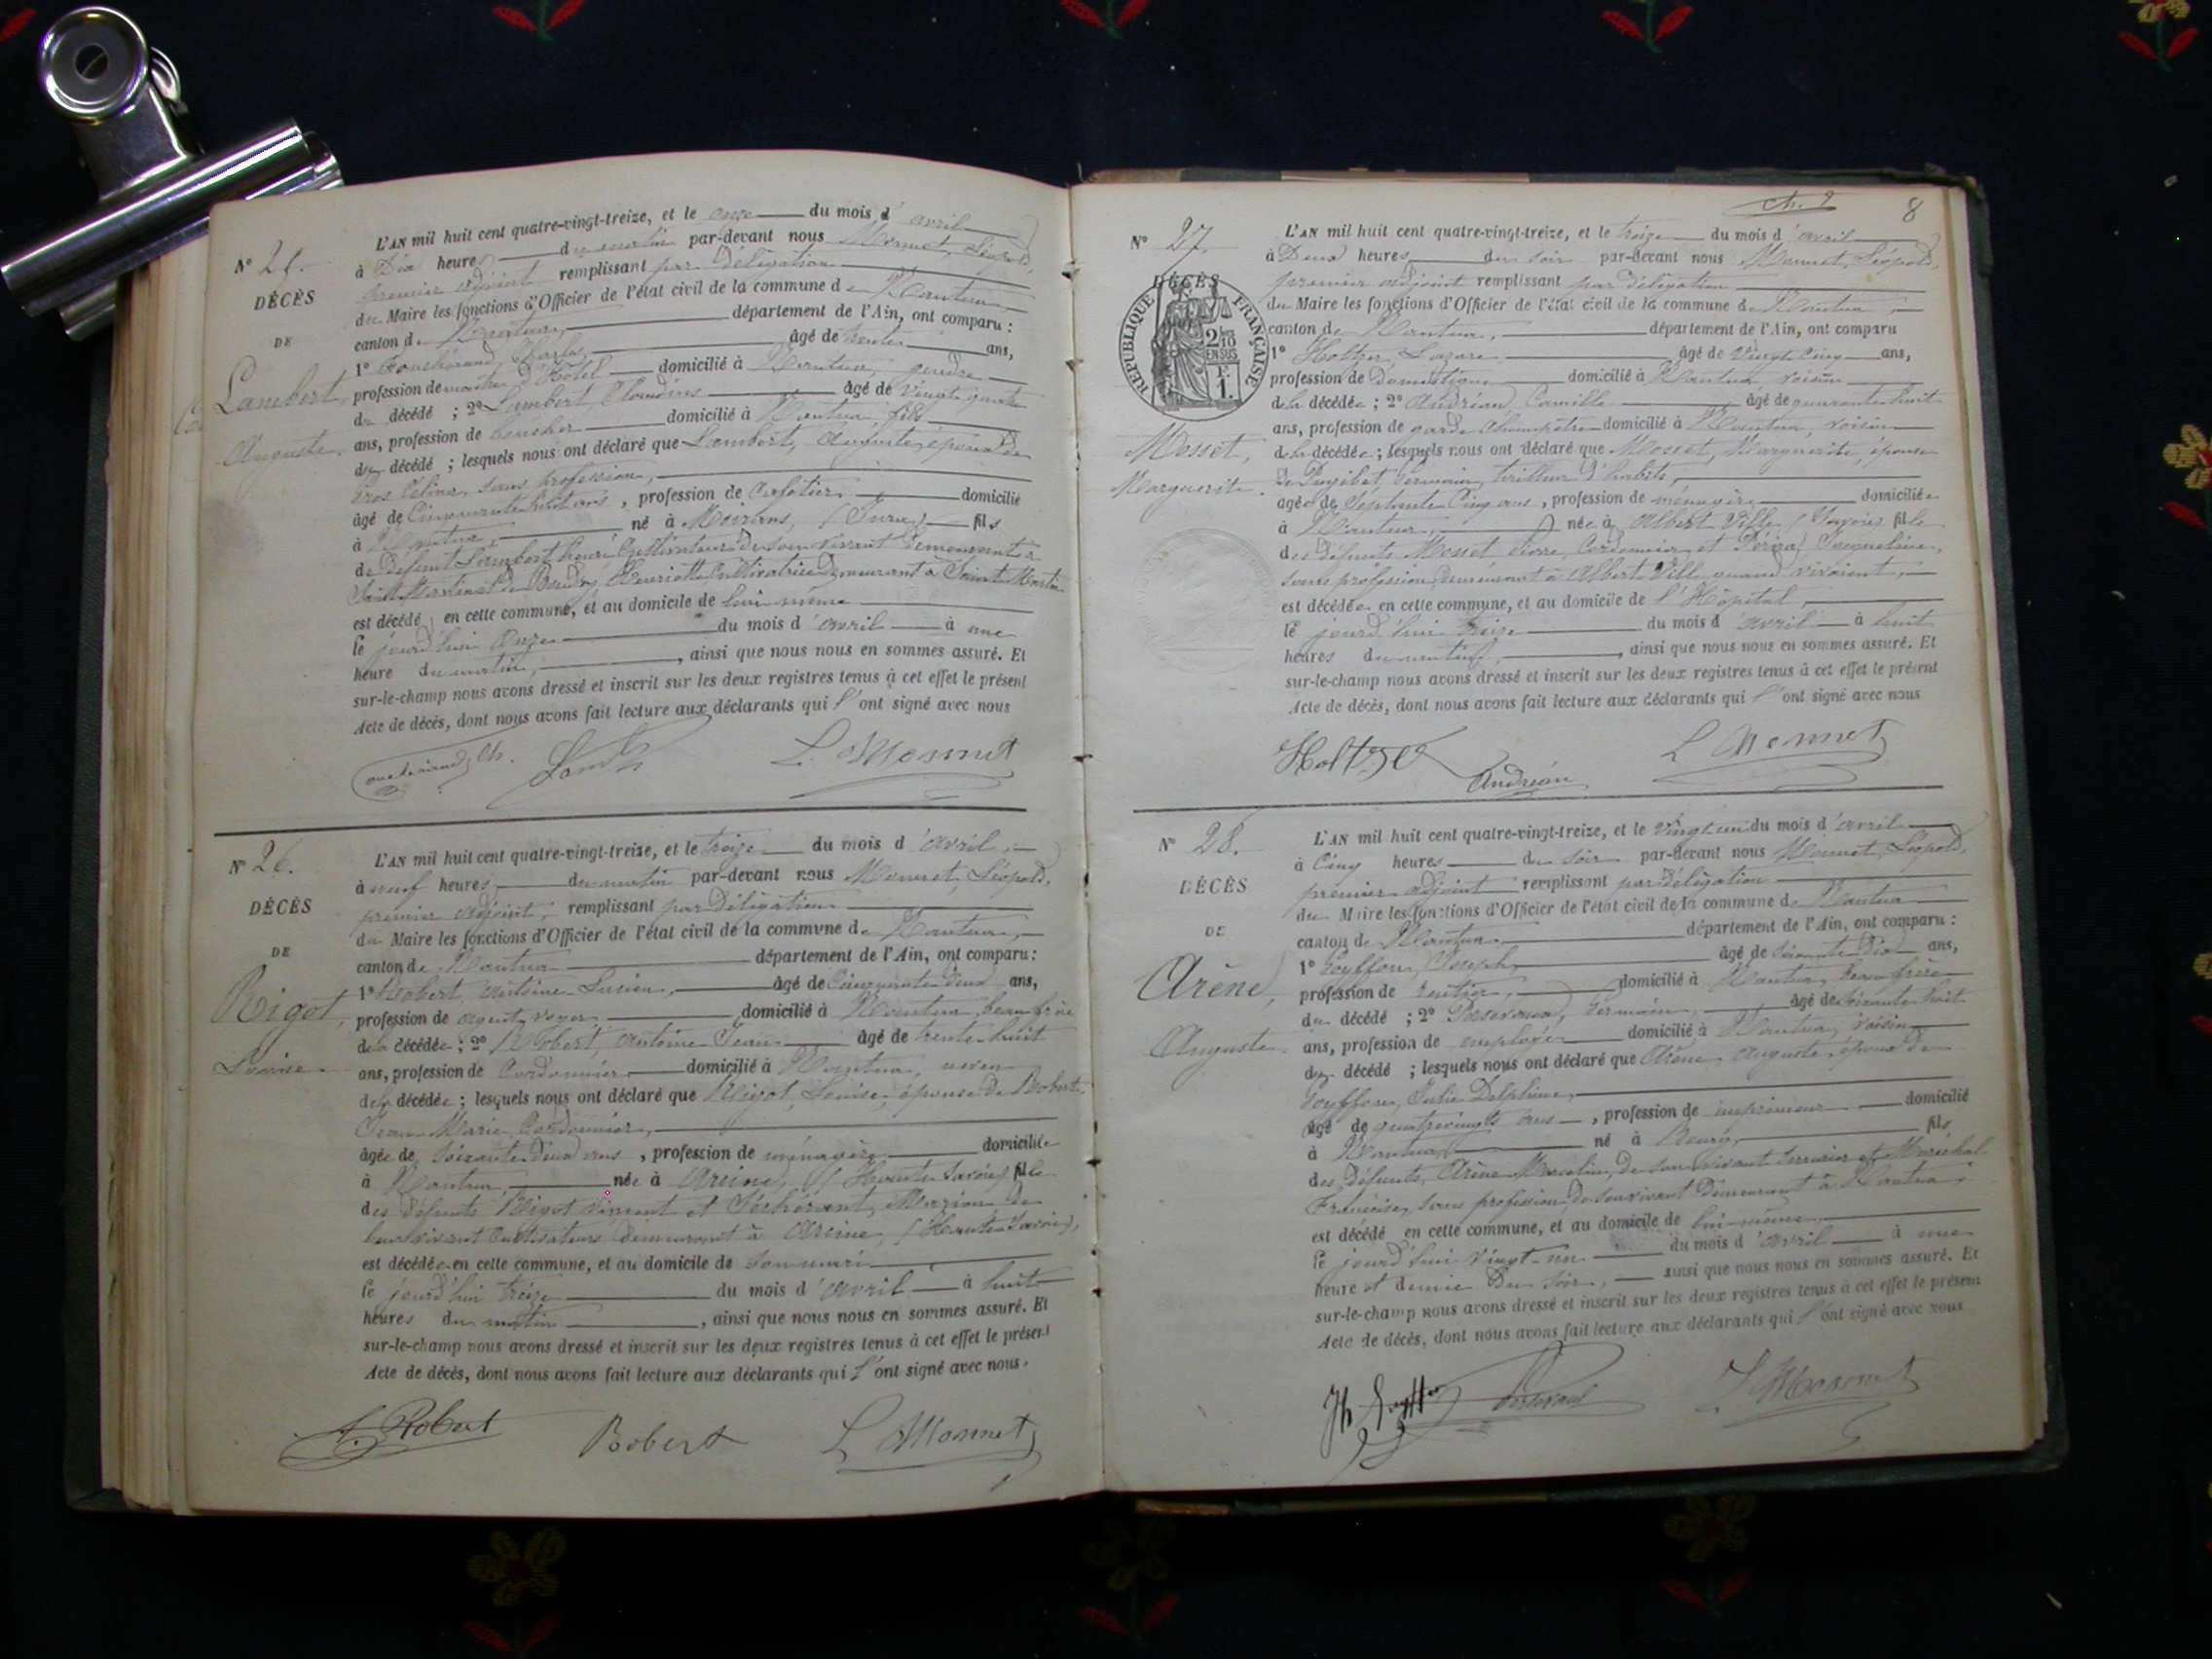 N° 25.
DÉCÈS
DE
Lambert,
Auguste.
L'AN mil huit cent quatre-vingt-treize, et le onze du mois d'avril
à Dix heures du matin par-devant nous Monnet, Léopold,
premier adjoint remplissant par délégation
du Maire les fonctions d'Officier de l'état civil de la commune de Nantua
canton de Nantua, département de l'Ain, ont comparu :
1° Charles, âgé de trente ans,
profession de maître d'hôtel domicilié à Nantua, gendre
du décédé ; 2° Lambert, Claudius âgé de vingt quatre
ans, profession de boucher domicilié à Nantua, fils
du décédé ; lesquels nous ont déclaré que Lambert, Auguste, époux de
Gros Céline, sans profession,
âgé de Cinquante huit ans, profession de Cafetier domicilié
à Nantua, né à Moirans, (Jura) fils
de défunt Lambert Cultivateur de son vivant demeurant à
Saint Henriette Cultivatrice demeurant à Saint Martin
est décédé en cette commune, et au domicile de lui-même
le jourd'hui onze du mois d'avril à une
heure du matin, , ainsi que nous nous en sommes assuré. Et
sur-le-champ nous avons dressé et inscrit sur les deux registres tenus à cet effet le présent
Acte de décès, dont nous avons fait lecture aux déclarants qui l'ont signé avec nous
Ch. L. Monnet
N° 26.
DÉCÈS
DE
Rigot,
Louise.
L'AN mil huit cent quatre-vingt-treize, et le treize du mois d'avril,
à neuf heures, du matin par-devant nous Monnet, Léopold,
premier adjoint, remplissant par délégation
du Maire les fonctions d'Officier de l'état civil de la commune de Nantua,
canton de Nantua département de l'Ain, ont comparu :
1° Robert, Antoine Lucien, âgé de Cinquante deux ans,
profession de agent voyer domicilié à Nantua, beau frère
de la décédée ; 2° Robert, Antoine Jean âgé de trente huit
ans, profession de Cordonnier domicilié à Nantua, neveu
de la décédée ; lesquels nous ont déclaré que Rigot, Louise, épouse de Robert,
Jean Marie, Cordonnier,
âgée de soixante deux ans, profession de ménagère domiciliée
à Nantua, née à Arcine, (Haute Savoie) fille
des défunts Rigot Vincent et de
leur vivant Cultivateurs demeurant à Arcine, (Haute Savoie),
est décédée en cette commune, et au domicile de son mari
le jourd'hui treize du mois d'avril à huit
heures du matin , ainsi que nous nous en sommes assuré. Et
sur-le-champ nous avons dressé et inscrit sur les deux registres tenus à cet effet le présent
Acte de décès, dont nous avons fait lecture aux déclarants qui l'ont signé avec nous.
A. Robert Robert L. Monnet
8
N° 27.
DÉCÈS
RÉPUBLIQUE FRANÇAISE
2/10 EN SUS
F. 1.
Mosset,
Marguerite.
L'AN mil huit cent quatre-vingt-treize, et le treize du mois d'avril
à Deux heures du soir par-devant nous Monnet, Léopold,
premier adjoint remplissant par délégation
du Maire les fonctions d'Officier de l'état civil de la commune de Nantua,
canton de Nantua, département de l'Ain, ont comparu
1° Holtzer, Lazare âgé de vingt cinq ans,
profession de domestique domicilié à Nantua, voisin
de la décédée ; 2° Andréan, Camille âgé de quarante huit
ans, profession de garde champêtre domicilié à Nantua, voisin
de la décédée ; lesquels nous ont déclaré que Mosset, Marguerite, épouse
de Germain, tailleur d'habits,
âgée de Septante Cinq ans, profession de ménagère domiciliée
à Nantua, née à Albert Ville (Savoie) fille
des défunts Mosset Pierre, Cordonnier et Jacqueline,
sans profession, demeurant à Albert Ville quand vivaient,
est décédée en cette commune, et au domicile de l'Hôpital,
le jourd'hui treize du mois d'avril à huit
heures du matin, , ainsi que nous nous en sommes assuré. Et
sur-le-champ nous avons dressé et inscrit sur les deux registres tenus à cet effet le présent
Acte de décès, dont nous avons fait lecture aux déclarants qui l'ont signé avec nous
Holtzer Andréan L. Monnet
N° 28.
DÉCÈS
DE
Arène,
Auguste.
L'AN mil huit cent quatre-vingt-treize, et le vingt un du mois d'avril
à Cinq heures du soir par-devant nous Monnet, Léopold,
premier adjoint remplissant par délégation
du Maire les fonctions d'Officier de l'état civil de la commune de Nantua
canton de Nantua, département de l'Ain, ont comparu :
1° Goyffon, Joseph, âgé de soixante dix ans,
profession de rentier, domicilié à Nantua, beau frère
du décédé ; 2° Germain, âgé de soixante huit
ans, profession de employé domicilié à Nantua, voisin
du décédé ; lesquels nous ont déclaré que Arène, Auguste, époux de
Goyffon, Julie Delphine,
âgé de quatrevingts ans, profession de imprimeur domicilié
à Nantua, né à fils
des défunts, Arène Marcelin, de son vivant serrurier et Maréchal
Françoise, sans profession, de son vivant demeurant à Nantua,
est décédé en cette commune, et au domicile de lui-même
le jourd'hui vingt-un du mois d'avril à une
heure et demie du soir, ainsi que nous nous en sommes assuré. Et
sur-le-champ nous avons dressé et inscrit sur les deux registres tenus à cet effet le présent
Acte de décès, dont nous avons fait lecture aux déclarants qui l'ont signé avec nous
L. Monnet